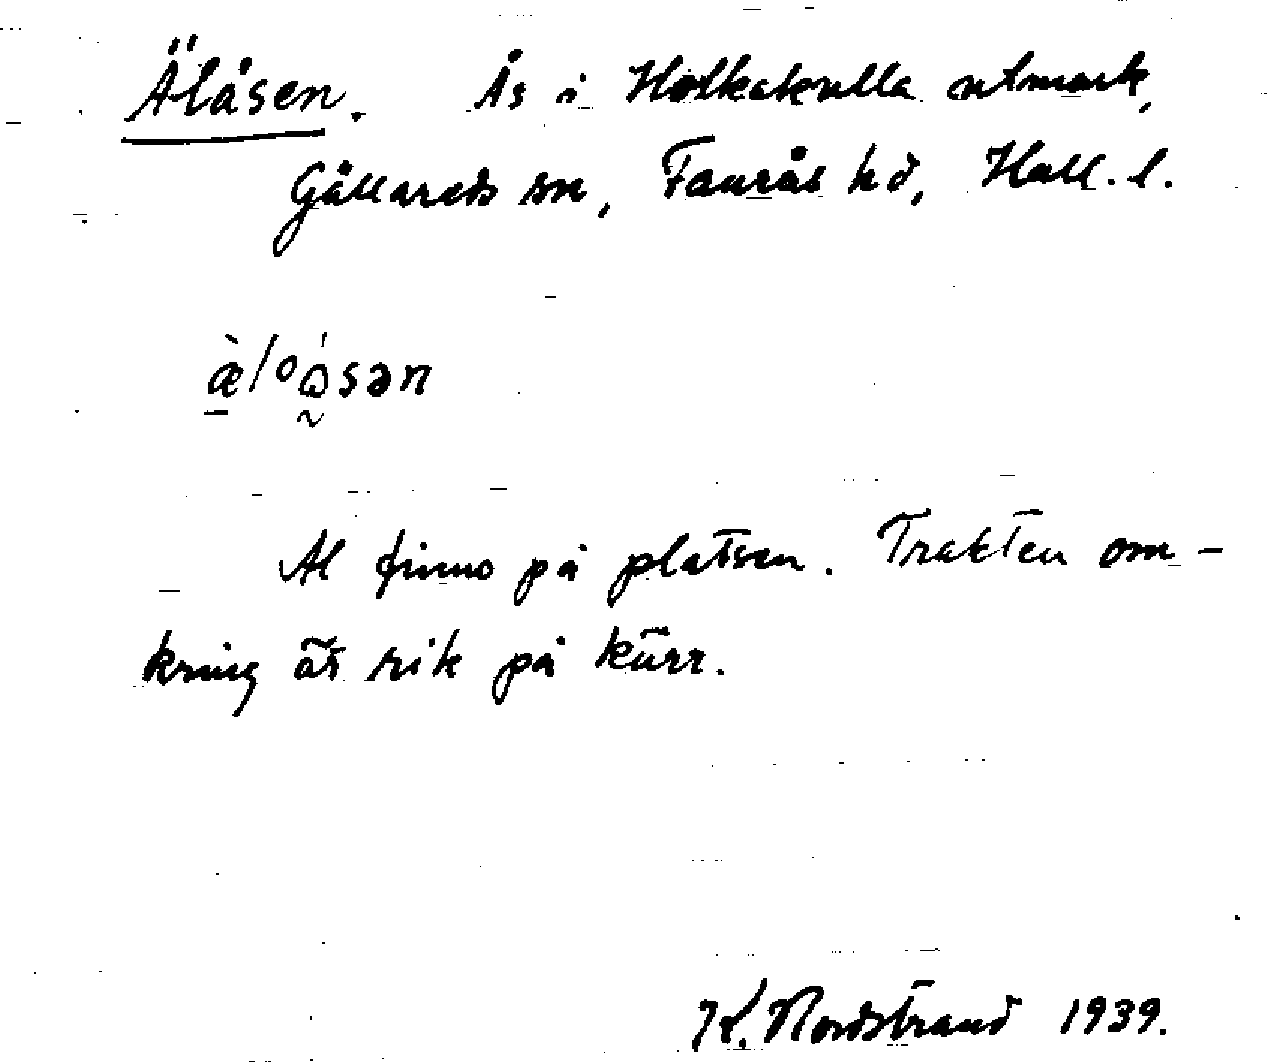 Äläsen. Ås i Holkakulla utmark,
Gällareds sn, Faurås hd, Hall. l.
æ̀lºɷ́sən
Al finns på platsen. Trakten om-
kring är rik på kärr.
K. Nordstrand 1939.